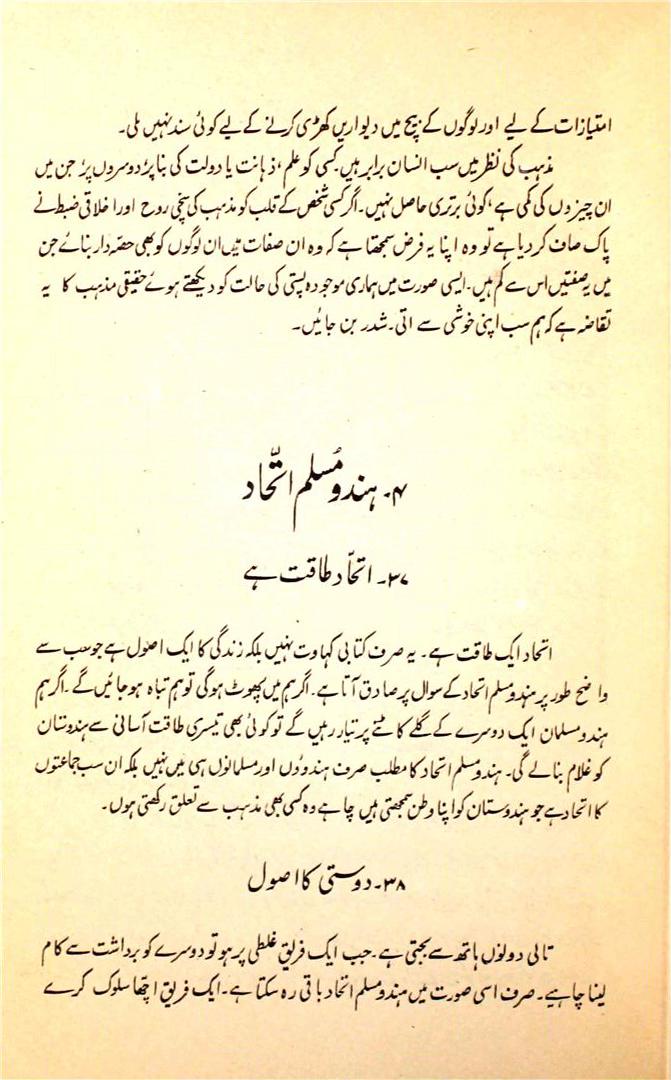 امتیازات کے لیے اور لوگوں کے بیچ میں دیواریں کھڑی کرنے کے لیے کوئی سند نہیں ملی۔
مذہب کی نظر میں سب انسان برابر ہیں کسی کو علم، ذہانت یا دولت کی بنا پر دوسروں پر جن میں
ان چیزوں کی کمی ہے، کوئی برتری حاصل نہیں۔ اگر کسی شخص کے قلب کو مذہب کی سچی روح اور اخلاقی ضبط نے
پاک صاف کر دیا ہے تو وہ اپنا یہ فرض سمجھتا ہے کہ وہ ان صفات میں ان لوگوں کو بھی حصّہ دار بنائے جن
میں یہ صفتیں اس سے کم ہیں۔ ایسی صورت میں ہماری موجودہ پستی کی حالت کو دیکھتے ہوئے حقیقی مذہب کا یہ
تقاضہ ہے کہ ہم سب اپنی خوشی سے اتی۔ شدر بن جائیں۔
۴۔ ہندو مُسلم اتّحاد
۳۷۔ اتحّاد طاقت ہے
اتحاد ایک طاقت ہے۔ یہ صرف کتابی کہاوت نہیں بلکہ زندگی کا ایک اصول ہے جو سب سے
واضح طور پر ہندو مسلم اتحاد کے سوال پر صادق آتا ہے۔ اگر ہم میں پھوٹ ہوگی تو ہم تباہ ہو جائیں گے۔ اگر ہم
ہندو مسلمان ایک دوسرے کے گلے کاٹنے پر تیار رہیں گے تو کوئی بھی تیسری طاقت آسانی سے ہندوستان
کو غلام بنا لے گی۔ ہندو مسلم اتحاد کا مطلب صرف ہندوؤں اور مسلمانوں ہی میں نہیں بلکہ ان سب جماعتوں
کا اتحاد ہے جو ہندوستان کو اپنا وطن سمجھتی ہیں چاہے وہ کسی بھی مذہب سے تعلق رکھتی ہوں۔
۳۸۔ دوستی کا اصول
تالی دولوں ہاتھ سے بجتی ہے۔ جب ایک فریق غلطی پر ہو تو دوسرے کو برداشت سے کام
لینا چاہیے۔ صرف اسی صورت میں ہندو مسلم اتحاد باقی رہ سکتا ہے۔ ایک فریق اچھا سلوک کرے